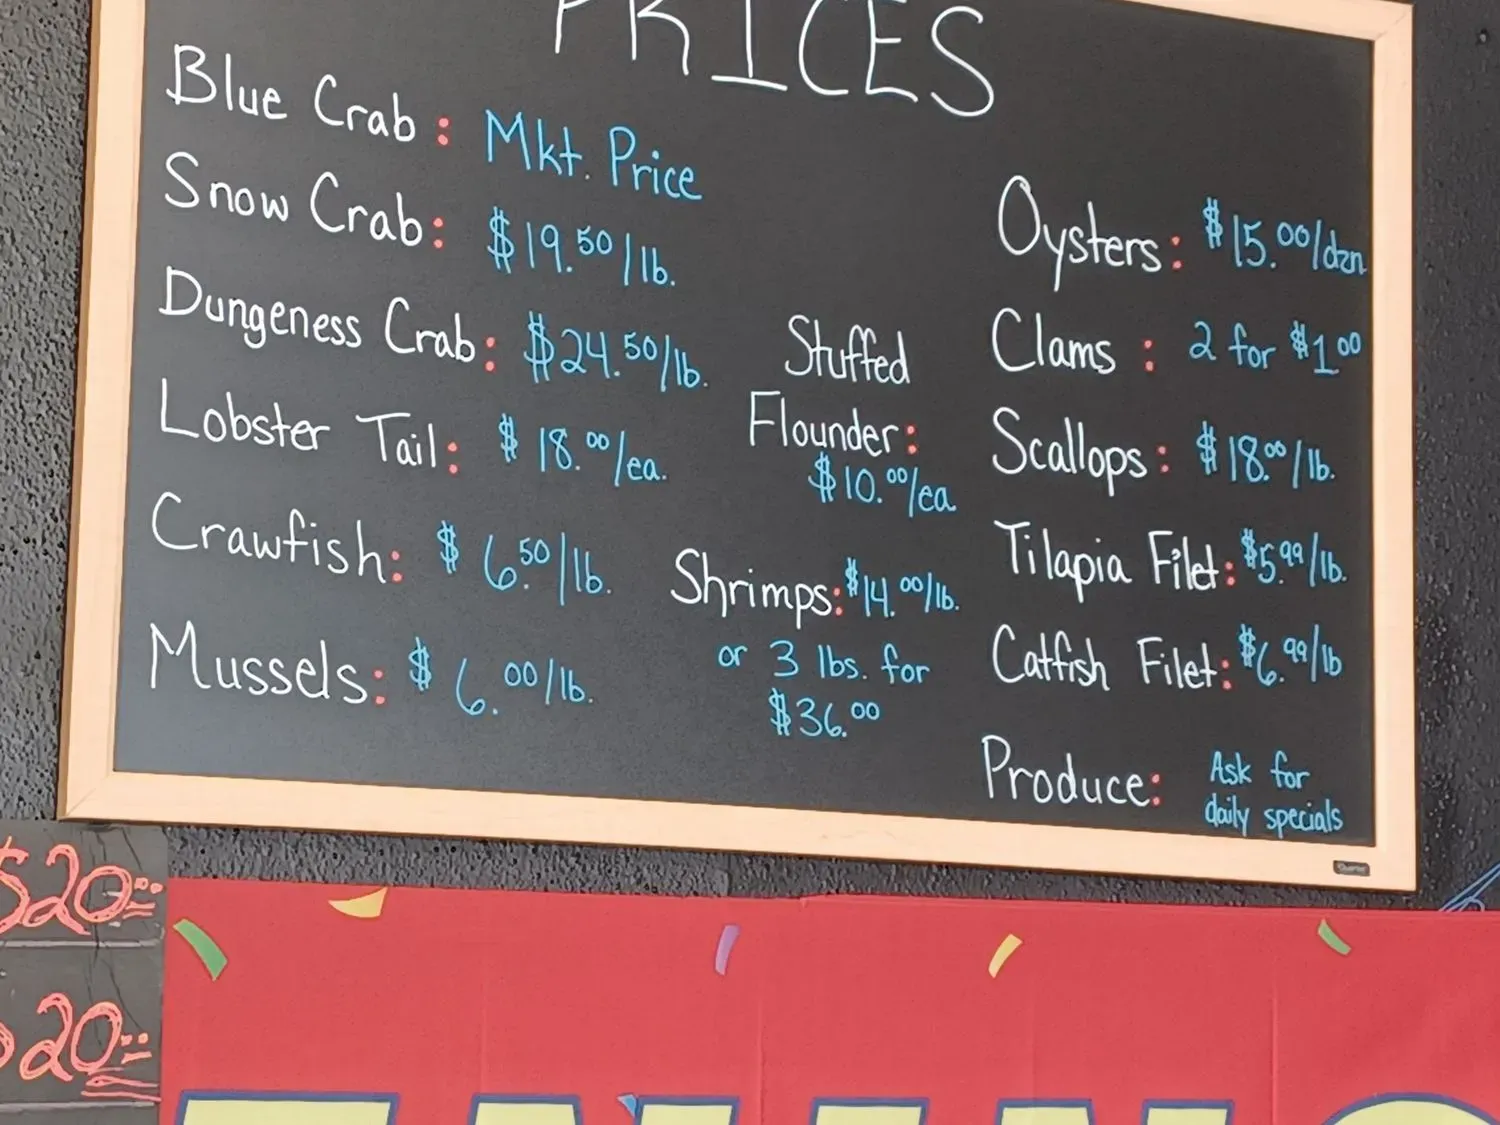 PRICES
Blue Crab: Mkt. Price
Snow Crab: $19.50/lb.
Dungeness Crab: $24.50/lb.
Lobster Tail: $18.00/ea.
Crawfish: $6.50/lb.
Mussels: $6.00/lb.
Stuffed
Flounder:
$10.00/ea
Shrimps: $14.00/lb.
or 3 lbs. for
$36.00
Oysters: $15.00/dzn
Clams: 2 for $1.00
Scallops: $18.00/lb.
Tilapia Filet: $5.99/lb.
Catfish Filet: $6.99/lb
Produce: Ask for
daily specials
$20.00
$20.00